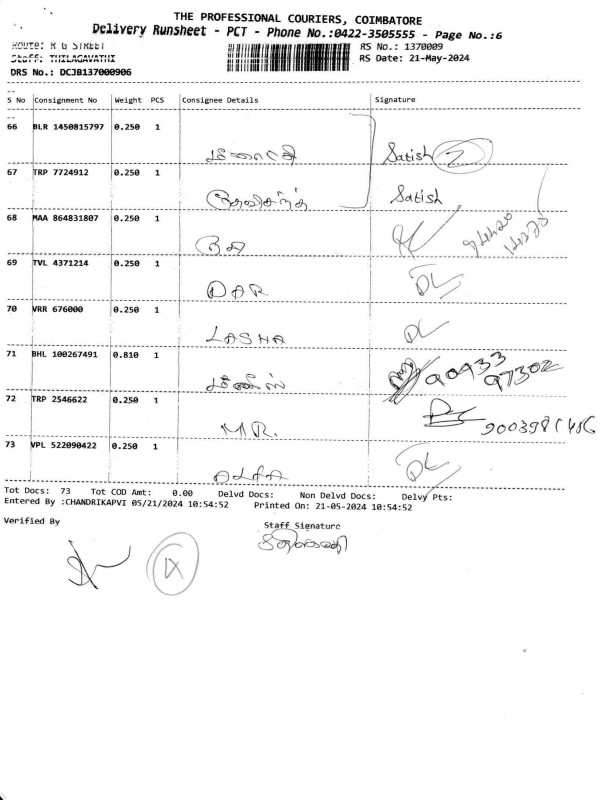 THE PROFESSIONAL COURIERS, COIMBATORE
Delivery Runsheet - PCT - Phone No.:0422-3505555 - Page No.:6
Route: R G STREET RS No.: 1370009
Staff: THILAGAVATHI RS Date: 21-May-2024
DRS No.: DCJB137000906
S No Consignment No Weight PCS Consignee Details Signature
66 BLR 1450815797 0.250 1
Satish 2
67 TRP 7724912 0.250 1
Satish
68 MAA 864831807 0.250 1
69 TVL 4371214 0.250 1
DAR DL
70 VRR 676000 0.250 1
LASHA DL
71 BHL 100267491 0.810 1
90933
97302
72 TRP 2546622 0.250 1
M.R.
73 VPL 522090422 0.250 1
ALFA DL
Tot Docs: 73 Tot COD Amt: 0.00 Delvd Docs: Non Delvd Docs: Delvy Pts:
Entered By :CHANDRIKAPVI 05/21/2024 10:54:52 Printed On: 21-05-2024 10:54:52
Verified By Staff Signature